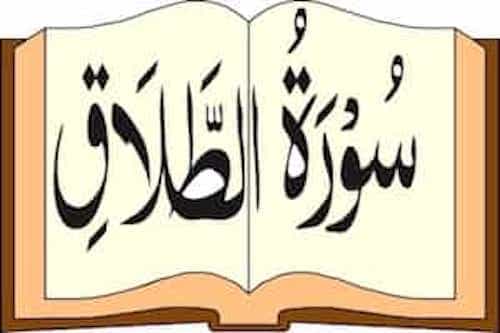 سُوْرَةُ الطَّلَاقِ